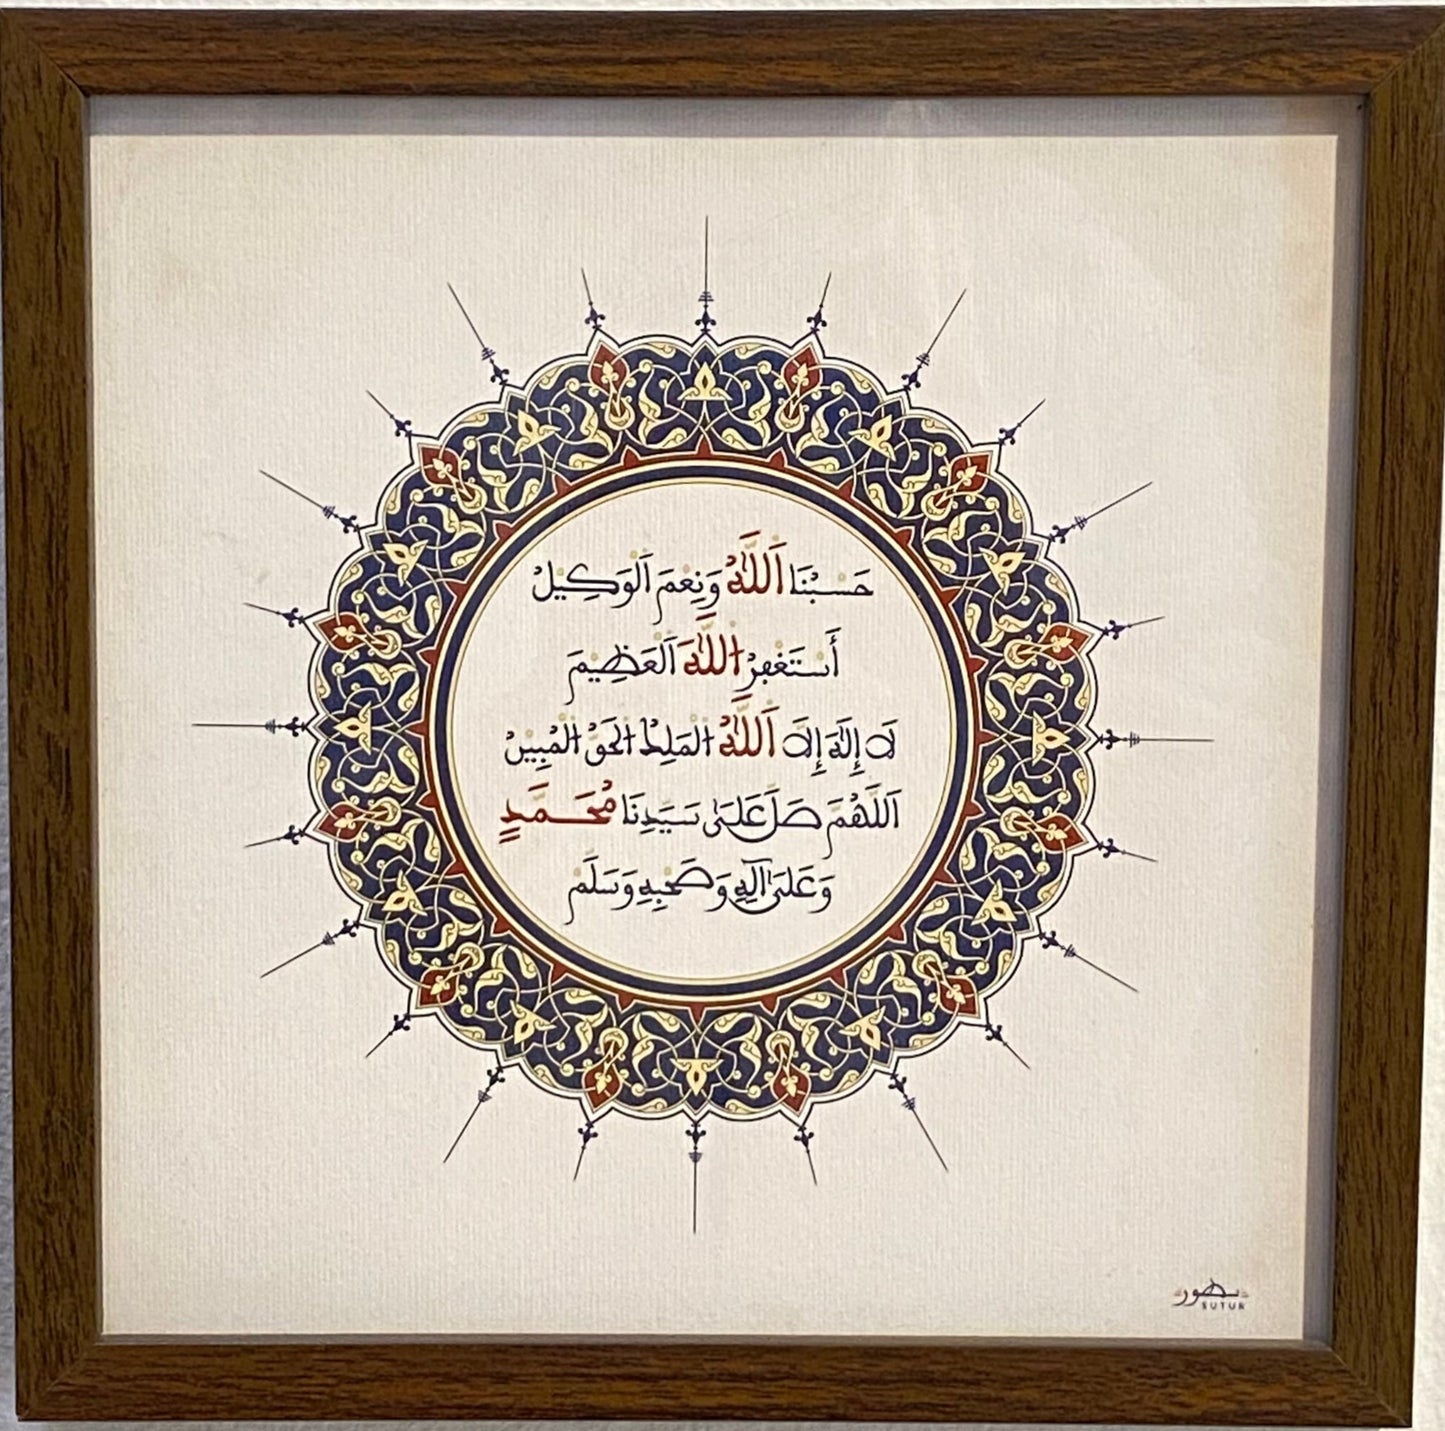 حَسْبُنَا اَللَّهُ وَنِعْمَ اَلْوَكِيلْ
أَسْتَغْفِرُ اللَّهَ اَلْعَظِيمَ
لَا إِلَهَ إِلَّا اَللَّهُ الْمَلِكُ الْحَقُّ الْمُبِينْ
اَللَّهُمَّ صَلِّ عَلَى سَيِّدِنَا مُحَمَّدٍ
وَعَلَى آلِهِ وَصَحْبِهِ وَسَلَّمْ
سطور
SUTUR